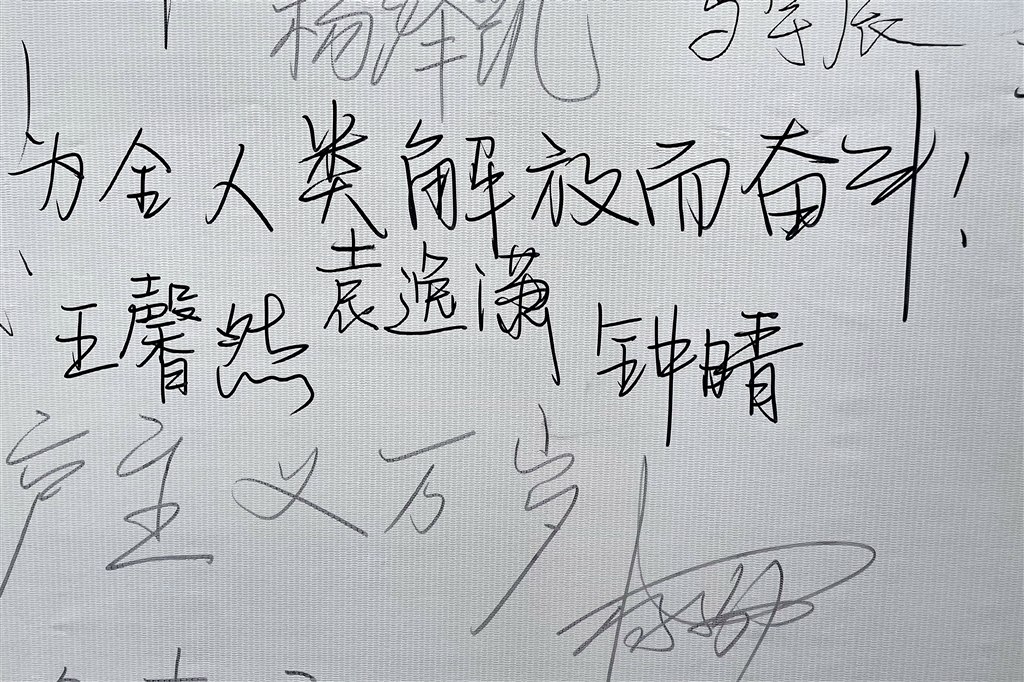 杨泽凯
宇辰
为全人类解放而奋斗!
王馨然 袁逸潇 钟晴
产主义万岁